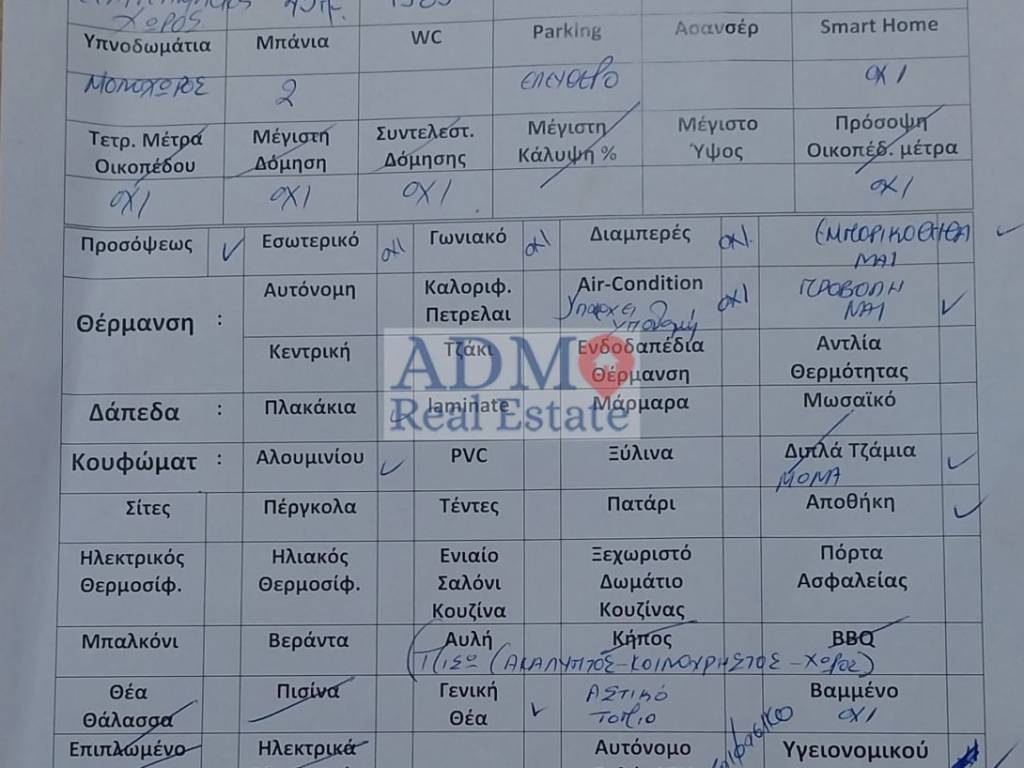 ΧΩΡΟΣ
Υπνοδωμάτια Μπάνια WC Parking Ασανσέρ Smart Home
ΜΟΝΟΧΩΡΟΣ 2 ΕΛΕΥΘΕΡΟ ΟΧΙ
Τετρ. Μέτρα Μέγιστη Συντελεστ. Μέγιστη Μέγιστο Πρόσοψη
Οικοπέδου Δόμηση Δόμησης Κάλυψη % Ύψος Οικοπέδ. μέτρα
ΟΧΙ ΟΧΙ ΟΧΙ ΟΧΙ
Προσόψεως Εσωτερικό ΟΧΙ Γωνιακό ΟΧΙ Διαμπερές ΟΧΙ.
ΝΑΙ
Αυτόνομη Καλοριφ. Air-Condition ΟΧΙ ΠΡΟΒΟΛΗ
Θέρμανση : Πετρελαι Υπαρχει ΝΑΙ
Κεντρική Τζάκι Ενδοδαπέδια Αντλία
Θέρμανση Θερμότητας
ADM
Real Estate
Δάπεδα : Πλακάκια laminate Μάρμαρα Μωσαϊκό
Κουφώματ : Αλουμινίου PVC Ξύλινα Διπλά Τζάμια
ΜΟΝΑ
Σίτες Πέργκολα Τέντες Πατάρι Αποθήκη
Ηλεκτρικός Ηλιακός Ενιαίο Ξεχωριστό Πόρτα
Θερμοσίφ. Θερμοσίφ. Σαλόνι Δωμάτιο Ασφαλείας
Κουζίνα Κουζίνας
Μπαλκόνι Βεράντα Αυλή Κήπος BBQ
ΠΙΣΩ (ΑΚΑΛΥΠΤΟΣ-ΚΟΙΝΟΧΡΗΣΤΟΣ-ΧΩΡΟΣ)
Θέα Πισίνα Γενική ΑΣΤΙΚΟ Βαμμένο
Θάλασσα Θέα ΤΟΠΙΟ ΟΧΙ
Επιπλωμένο Ηλεκτρικά Αυτόνομο Υγειονομικού